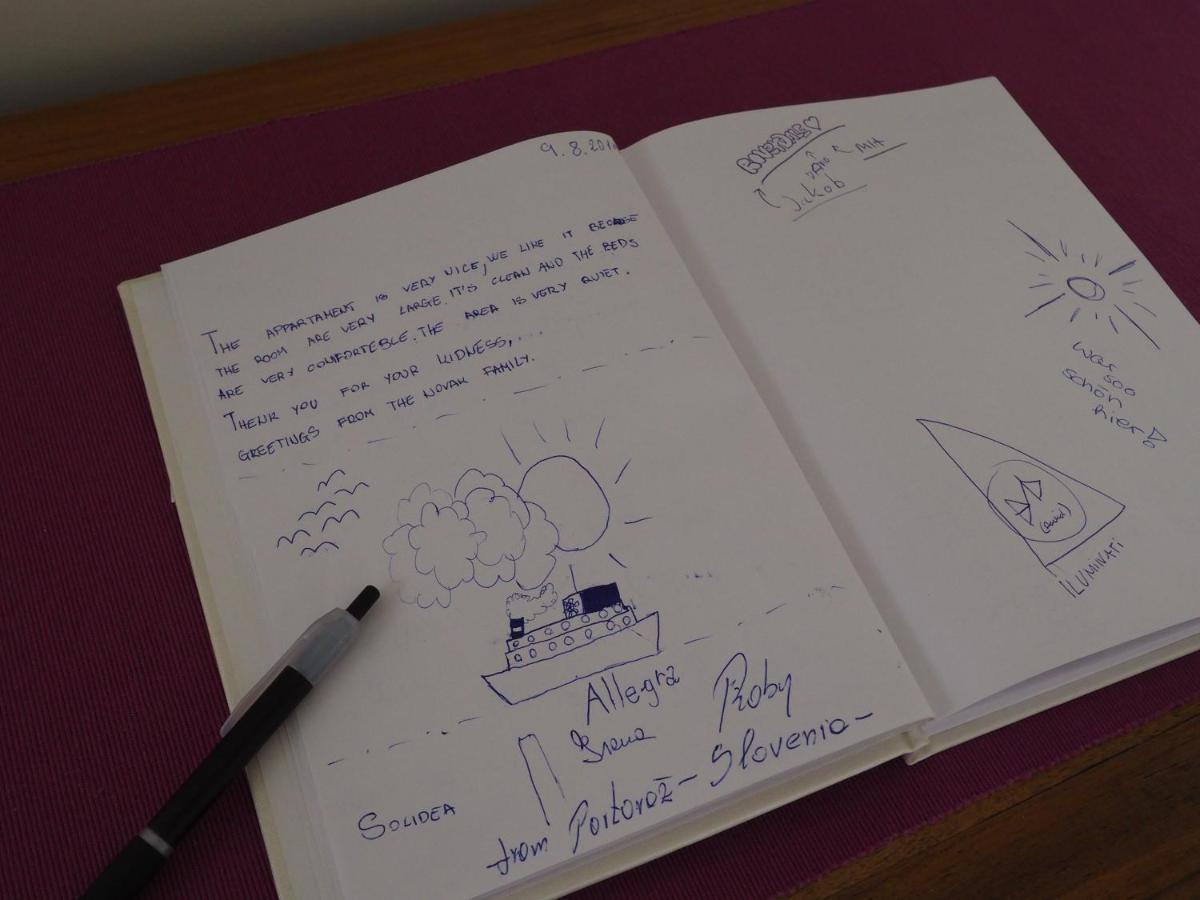 9.8.201
THE APPARTAMENT IS VERY NICE, WE LIKE IT BECAUSE
THE ROOM ARE VERY LARGE. IT'S CLEAN AND THE BEDS
ARE VERY COMFORTEBLE. THE AREA IS VERY QUIET.
THENK YOU FOR YOUR KIDNESS,...
GREETINGS FROM THE NOVAK FAMILY.
Allegra
Roby
SOLIDEA
from Portorož - Slovenia -
MIA
Jakob
war
soo
schön
hier!
ILUMINATI